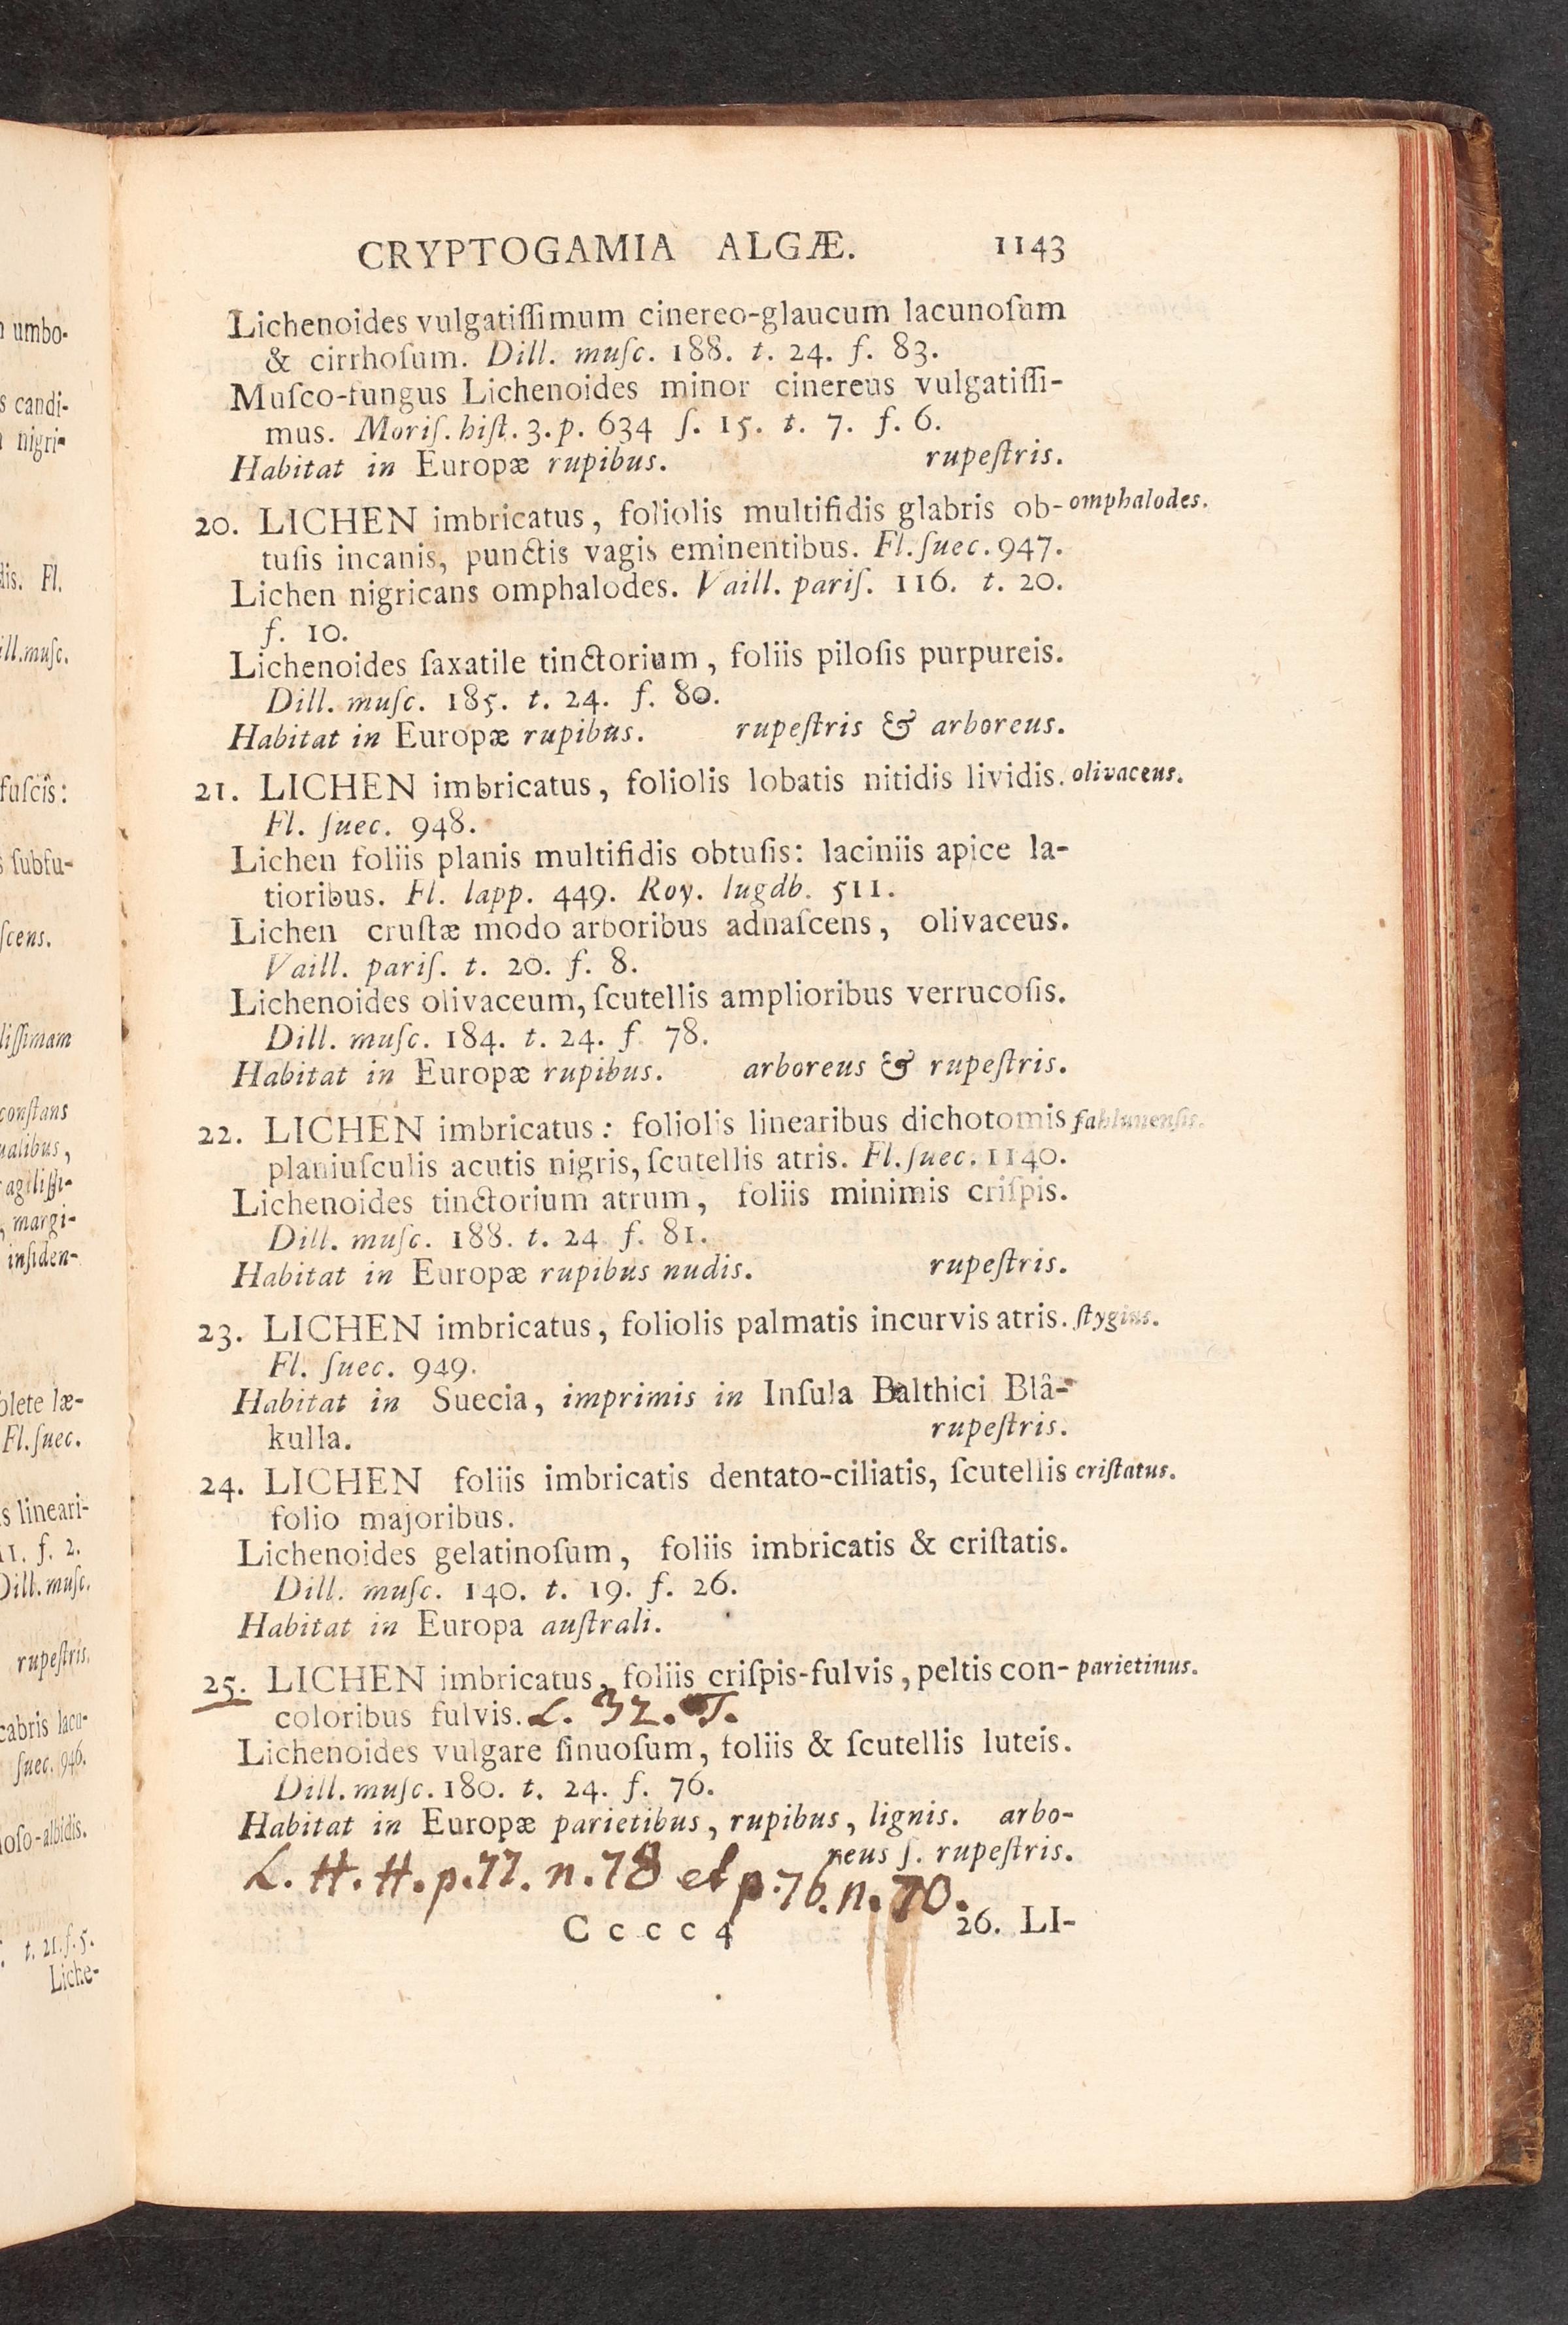 CRYPTOGAMIA ALGÆ. 1143
Lichenoides vulgatiſſimum cinereo-glaucum lacunoſum
& cirrhoſum. Dill. muſc. 188. t. 24. f. 83.
Muſco-fungus Lichenoides minor cinereus vulgatiſſi-
mus. Moriſ. hiſt. 3. p. 634 ſ. 15. t. 7. f. 6.
Habitat in Europæ rupibus. rupeſtris.
20. LICHEN imbricatus, foliolis multifidis glabris ob- omphalodes.
tuſis incanis, punctis vagis eminentibus. Fl. ſuec. 947.
Lichen nigricans omphalodes. Vaill. pariſ. 116. t. 20.
f. 10.
Lichenoides ſaxatile tinctorium, foliis piloſis purpureis.
Dill. muſc. 185. t. 24. f. 80.
Habitat in Europæ rupibus. rupeſtris & arboreus.
21. LICHEN imbricatus, foliolis lobatis nitidis lividis. olivaceus.
Fl. ſuec. 948.
Lichen foliis planis multifidis obtuſis: laciniis apice la-
tioribus. Fl. lapp. 449. Roy. lugdb. 511.
Lichen cruſtæ modo arboribus adnaſcens, olivaceus.
Vaill. pariſ. t. 20. f. 8.
Lichenoides olivaceum, ſcutellis amplioribus verrucoſis.
Dill. muſc. 184. t. 24. f 78.
Habitat in Europæ rupibus. arboreus & rupeſtris.
22. LICHEN imbricatus: foliolis linearibus dichotomis fahlunenſis.
planiuſculis acutis nigris, ſcutellis atris. Fl. ſuec. 1140.
Lichenoides tinctorium atrum, foliis minimis criſpis.
Dill. muſc. 188. t. 24 f. 81.
Habitat in Europæ rupibus nudis. rupeſtris.
23. LICHEN imbricatus, foliolis palmatis incurvis atris. ſtygius.
Fl. ſuec. 949.
Habitat in Suecia, imprimis in Inſula Balthici Blâ-
kulla. rupeſtris.
24. LICHEN foliis imbricatis dentato-ciliatis, ſcutellis criſtatus.
folio majoribus.
Lichenoides gelatinoſum, foliis imbricatis & criſtatis.
Dill. muſc. 140. t. 19. f. 26.
Habitat in Europa auſtrali.
25. LICHEN imbricatus, foliis criſpis-fulvis, peltis con- parietinus.
coloribus fulvis. L. 32. T.
Lichenoides vulgare ſinuoſum, foliis & ſcutellis luteis.
Dill. muſc. 180. t. 24. f. 76.
Habitat in Europæ parietibus, rupibus, lignis. arbo-
reus ſ. rupeſtris.
L. H. H. p. 77. n. 78 et p. 76. n. 70.
C c c c 4 26. LI-
umbo-
candi-
nigri-
dis. Fl.
ill. muſc.
fuſcis:
ſubfu-
ſcens.
liſſimam
conſtans
ualibus,
agiliſſi-
, margi-
inſiden-
olete læ-
Fl. ſuec.
s lineari-
11. f. 2.
Dill. muſc.
rupeſtris.
cabris lacu-
ſuec. 946.
loſo-albidis.
t. 21. f. 5.
Liche-